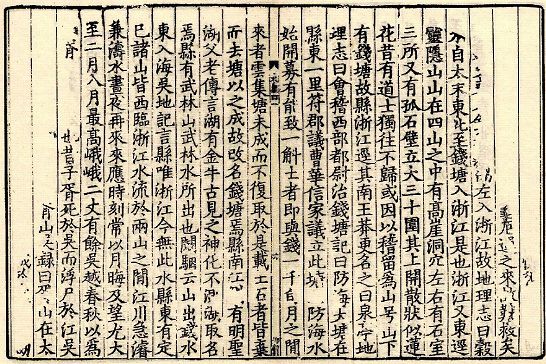 自太末東北至錢塘入浙江是也浙江又東逕
左入浙江故地理志曰穀
靈隱山山在四山之中有高崖洞穴左右有石室
三所又有孤石壁立大三十圍其上開散狀似蓮
花昔有道士獨往不歸或因以稽留為山號山下
有錢塘故縣浙江逕其南王莽更名之曰泉亭地
理志曰會稽西部都尉治錢塘記曰防海大塘在
縣東一里符郡議曹華信家議立此塘防海水
始開募有能致一斛土者即與錢一千月之間
來者雲集塘未成而不復取於是載土石者皆棄
而去塘以之成故改名錢塘焉縣南江有明聖
湖父老傳言湖有金牛古見之神化不測湖取名
焉縣有武林山武林水所出也闞駰云山出錢水
東入海吳地記言縣唯浙江今無此水縣東有定
已諸山皆西臨浙江水流於兩山之間江川急濬
兼濤水晝夜再來來應時刻常以月晦及望尤大
至二月八月最高峨峨二丈有餘吳越春秋以為
昔子胥死於吳而浮尸於江吳
胥山錄曰山在太